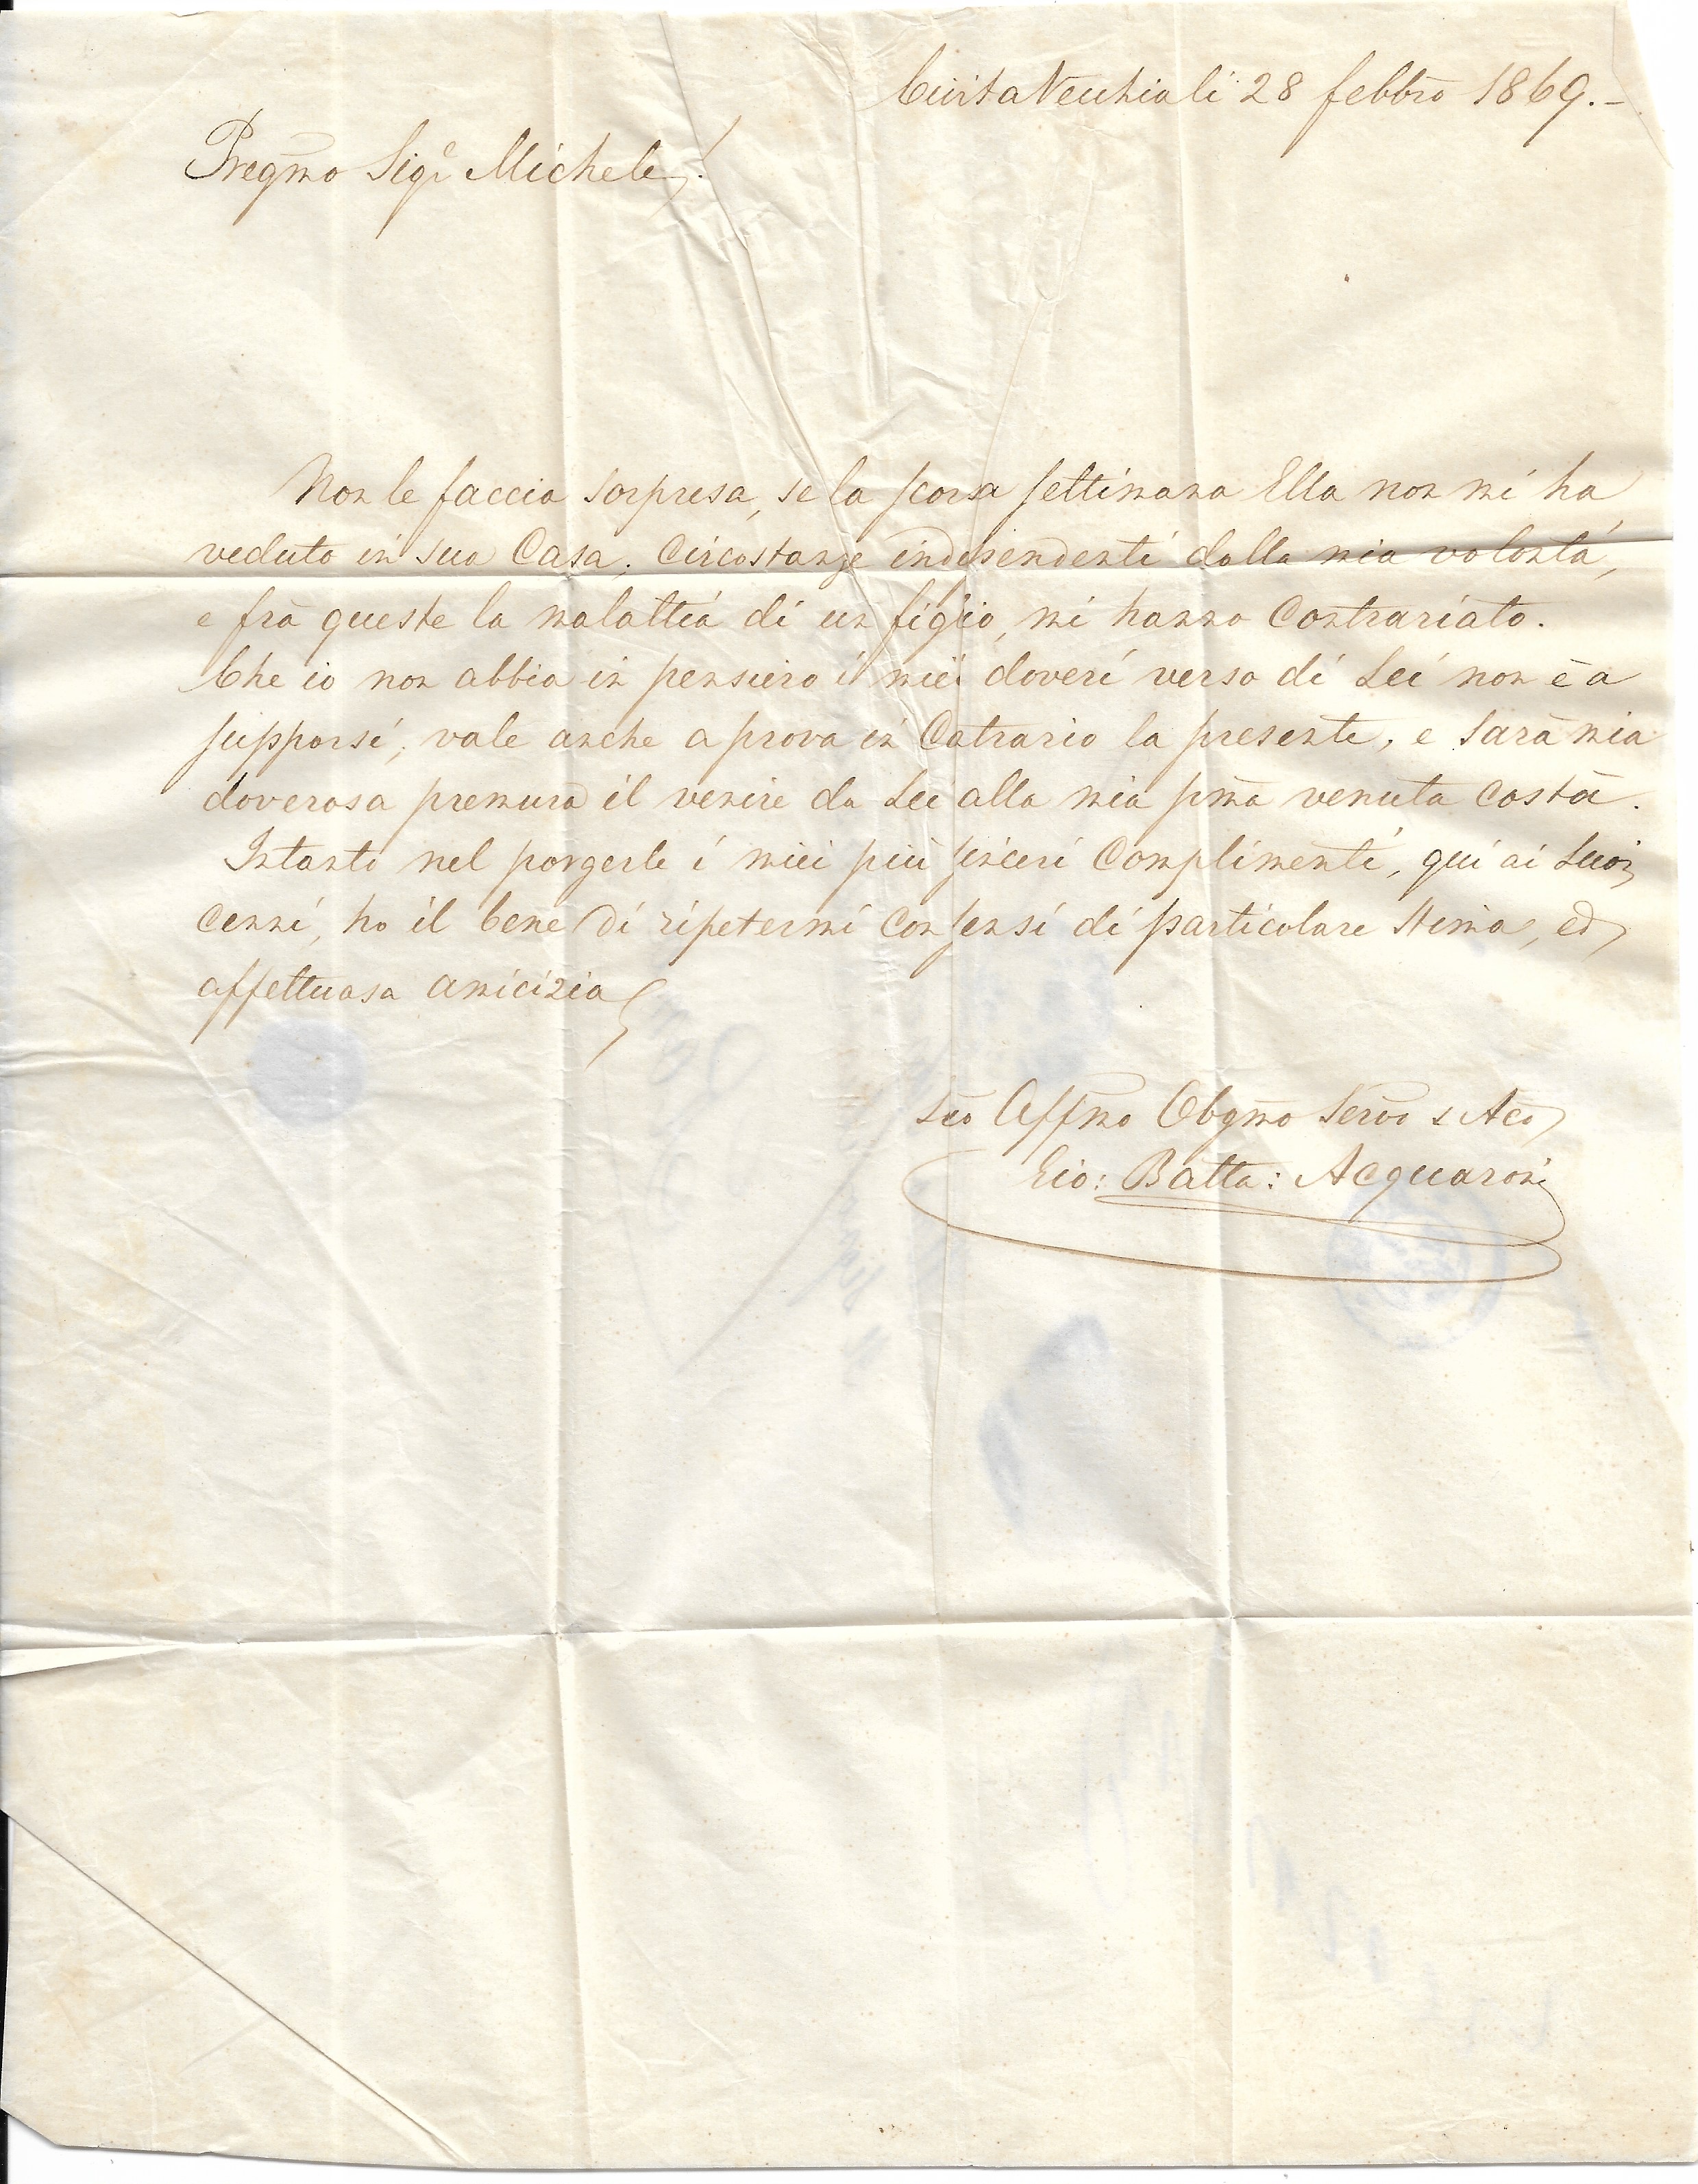 CivitaVecchia li 28 febbrō 1869.–
Pregm̄o Sigr̄e Michele,
Non le faccia sorpresa, se la scorsa settimana Ella non mi ha
veduto in sua Casa; Circostanze indipendenti dalla mia volontà,
e frà queste la malattia di un figlio, mi hanno Contrariato.
Che io non abbia in pensiero i miei doveri verso di Lei non è a
supporsi, vale anche a prova in Catrario la presente, e sarà mia
doverosa premura il venire da Lei alla mia pm̄a venuta costà.
Intanto nel porgerle i miei più sinceri Complimenti, qui ai Suoi
cenni, ho il bene di ripetermi con sensi di particolare stima, ed
affettuosa amicizia
Suo Affm̄o Obgm̄o Servō e Acō
Gio: Batta: Acquaroni